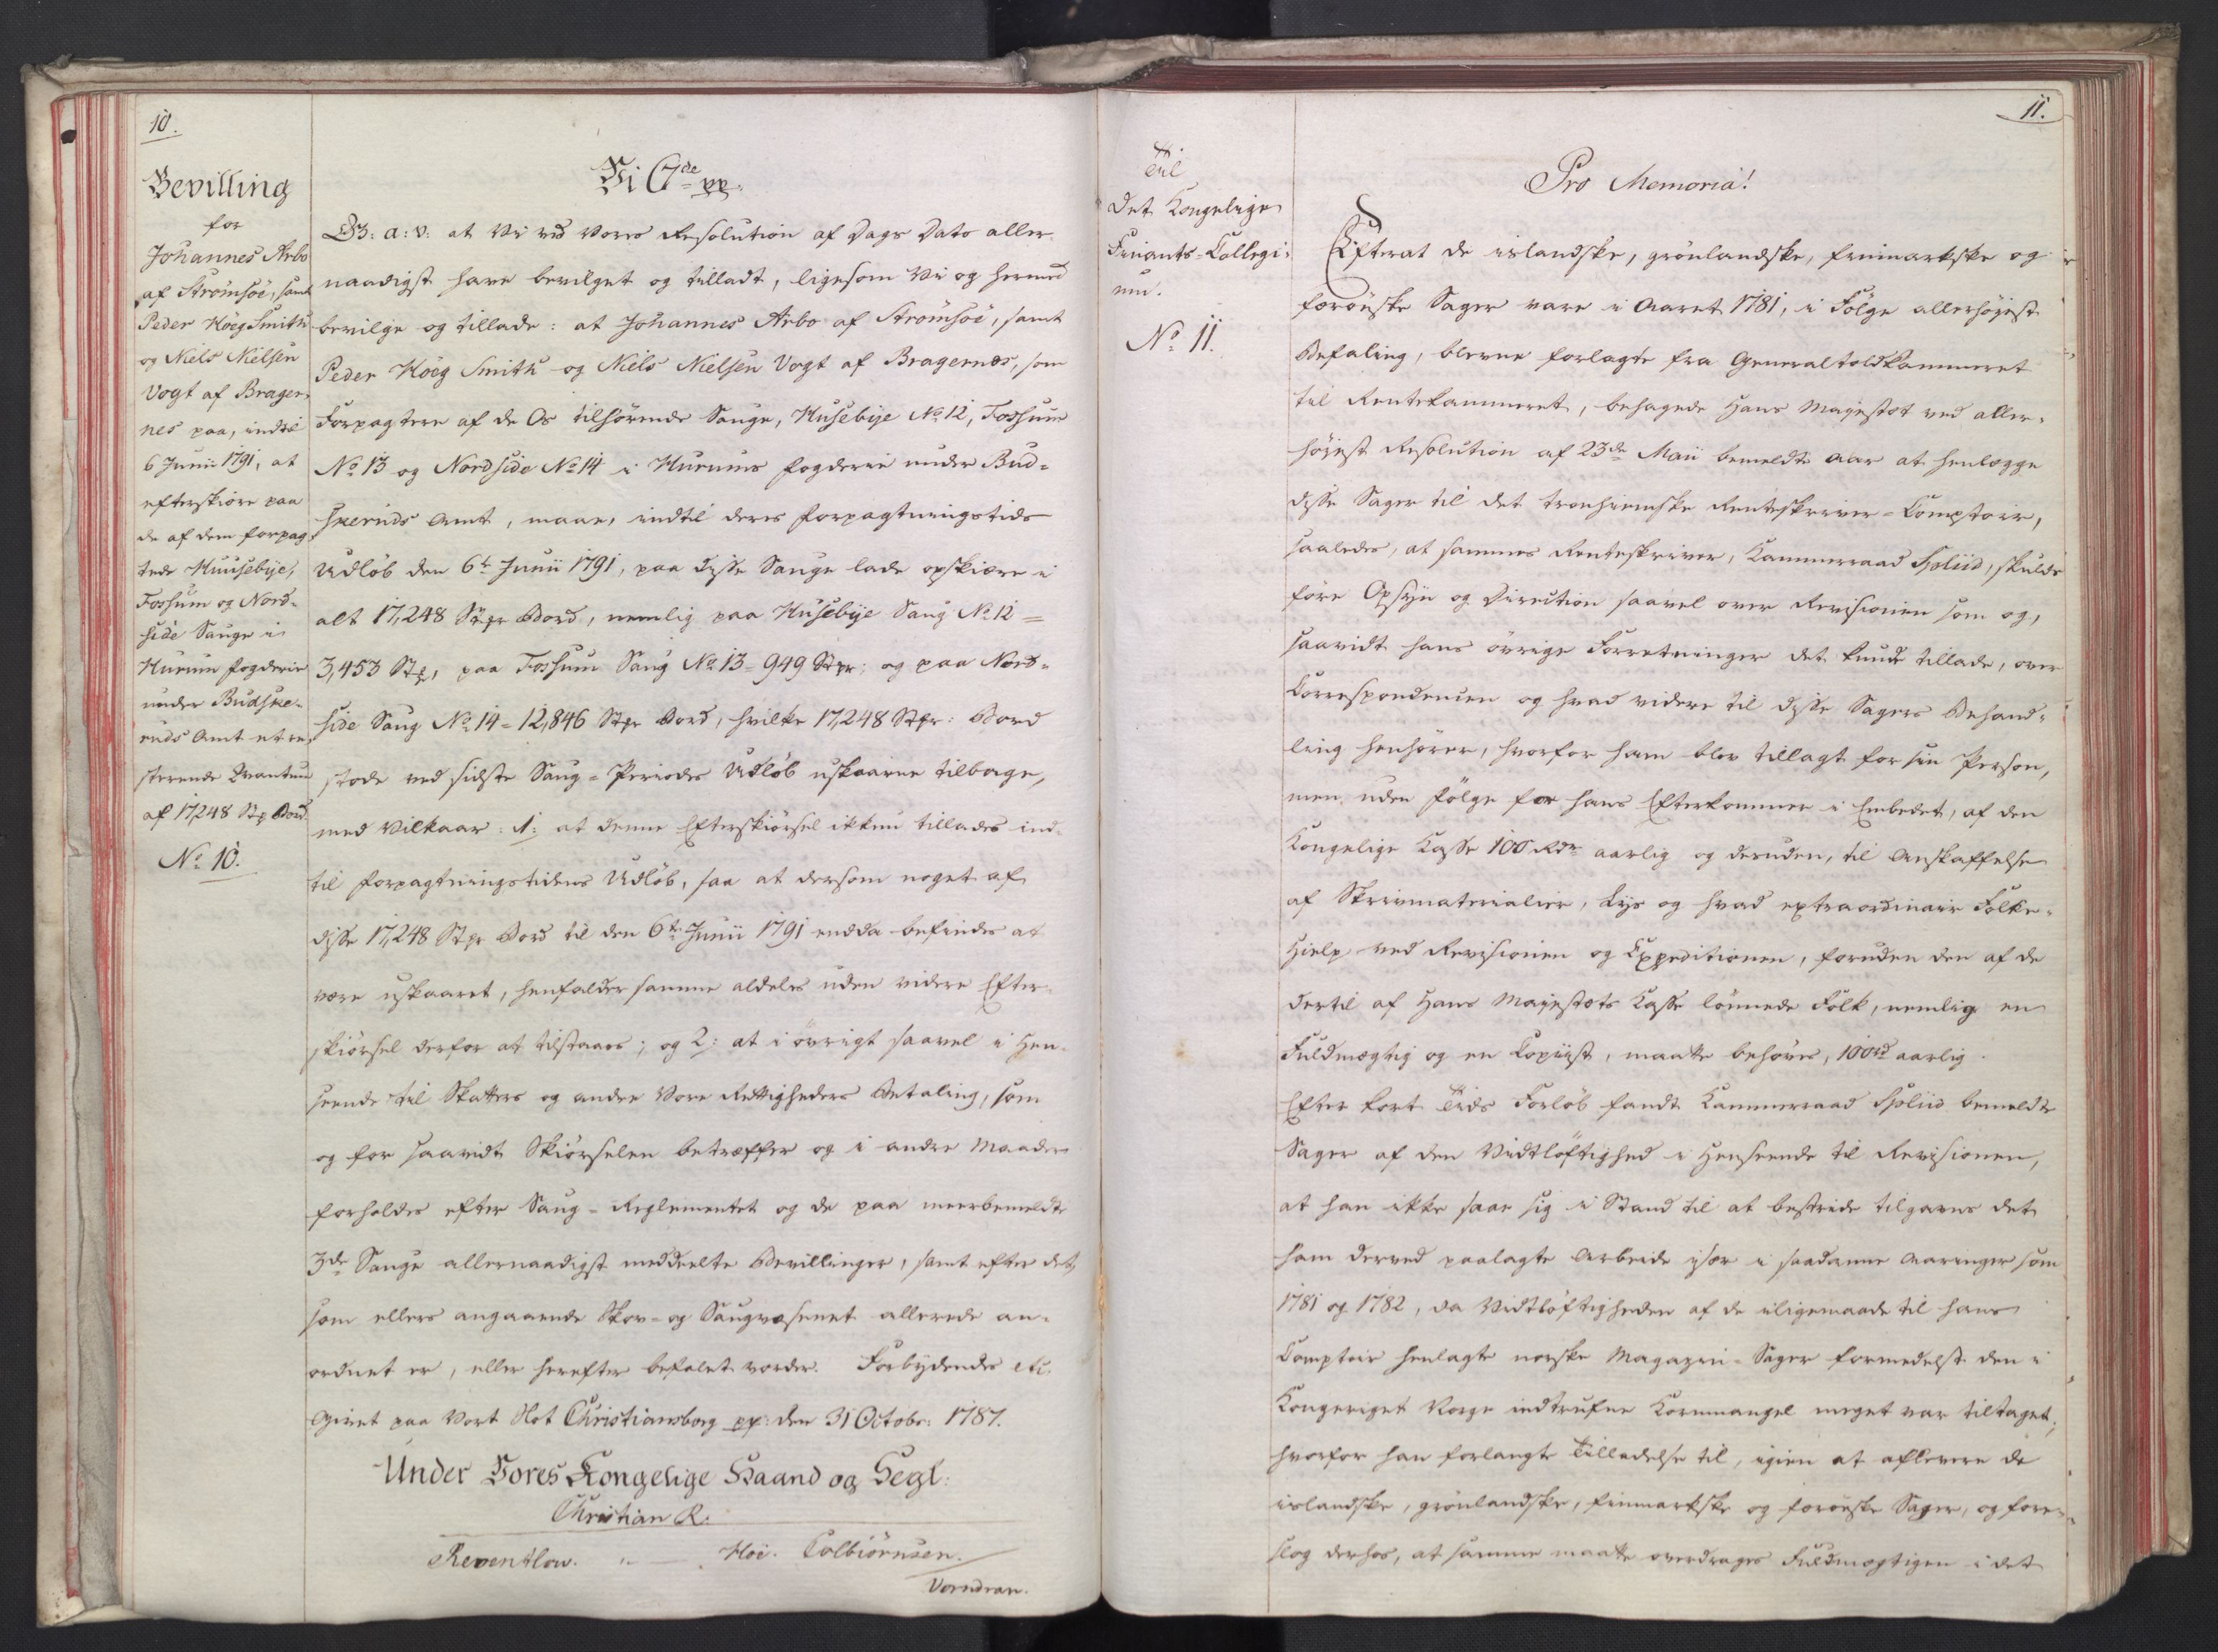 10.
Bevilling
for
Johannes Arbo
af Strømsöe, samt
Peder Höeg Smith
og Niels Nielsen
Vogt af Brager-
nes paa, indtil
6 Junii 1791, at
efterskiøre paa
de af dem forpag
tede Huusebÿe,
Fossum og Nord-
side Sauge i
Hurum fogderie
under Budske-
ruds Amt et re-
sterende Qvantum
af 17248 Stpr Bord
No 10.
Vi C 7de pp.
G: a: V: at Vi ved Vores Resolution af Dags Dato aller-
naadigst have bevilget og tilladt, ligesom Vi og hermed
bevilge og tillade: at Johannes Arbo af Strømsöe, samt
Peder Höeg Smith og Niels Nielsen Vogt af Bragernæs, som
Forpagtere af de Os tilhörende Sauge, Husebÿe No 12, Fossum
No 13 og Nordside No 14 i Hurums fogderie under Bud-
skeruds Amt, maae, indtil deres forpagtningstids
Udlöb den 6te Junii 1791, paa disse Sauge lade opskiære i
alt 17,248 Stpr Bord, nemlig paa Husebÿe Saug No 12 =
3,453 Stp, paa Fossum Saug No 13 - 949 Stpr: og paa Nord-
side Saug No 14 = 12,846 Stpr Bord, hvilke 17,248 Stpr: Bord
stode ved sidste Saug-Periodes Udlöb uskaarne tilbage,
med Vilkaar: 1: at denne Efterskiørsel ikkun tillades ind-
til forpagtningstidens Udlöb, saa at dersom noget af
disse 17,248 Stpr Bord til den 6te Junii 1791 endda befindes at
være uskaaret, henfalder samme aldeles uden videre Efter-
skiørsel derfor at tilstaaes; og 2: at i övrigt saavel i Hen-
seende til Skatters og andre Vore Rettigheders Betaling, som
og for saavidt Skiørselen betræffer og i andre Maader
forholdes efter Saug-Reglementet og de paa meerbemeldte
3de Sauge allernaadigst meddeelte Bevillinger, samt efter det
som ellers angaaende Skov- og Saugvæsenet allerede an-
ordnet er, eller herefter befalet vorder. Forbydendes etc.
Givet paa Vort Slot Christiansborg pp: den 31 Octobr: 1787.
Under Vores Kongelige Haand og Segl:
Christian R.
Reventlow. Hoë. Colbiörnsen.
Vorndran.
11.
Til
Det Kongelige
Finants-Collegi-
um.
No 11.
Pro Memoria!
Efterat de islandske, grönlandske, finmarkske og
færöeske Sager vare i Aaret 1781, i Fölge allerhöyest
Befaling, blevne forlagte fra Generaltoldkammeret
til Rentekammeret, behagede Hans Majestæt ved aller-
höyest Resolution af 23de Maii bemeldte Aar at henlægge
disse Sager til det tronhiemske Renteskriver-Comptoir,
saaledes, at sammes Renteskriver, Kammerraad Spliid, skulde
före Opsÿn og Direction saavel over Revisionen som og,
saavidt hans övrige Forretninger det kunde tillade, over
Correspondencen og hvad videre til disse Sagers Behand-
ling henhörer, hvorfor ham blev tillagt for sin Person,
men uden fölge for hans Efterkommer i Embedet, af den
Kongelige Kasse 100 Rdr aarlig og desuden, til Anskaffelse
af Skrivmaterialier, Lys og hvad extraordinair Folke-
Hielp ved Revisionen og Expeditionen, foruden den af de
dertil af Hans Majestæts Kasse lönnede Folk, nemlig en
Fuldmægtig og en Copiist, maatte behöves, 100rd aarlig.
Efter kort Tids Forlöb fandt Kammerraad Spliid bemeldte
Sager af den Vidtlöftighed i Henseende til Revisionen,
at han ikke saae sig i Stand til at bestride tilgavns det
ham derved paalagte Arbeide især i saadanne Aaringer som
1781 og 1782, da Vidtlöftigheden af de iligemaade til hans
Comptoir henlagte norske Magazin-Sager formedelst den i
Kongeriget Norge indtrufne Kornmangel meget var tiltaget;
hvorfor han forlangte Tilladelse til, igien at aflevere de
islandske, grönlandske, finmarkske og færöeske Sager, og fore-
slog derhos, at samme maatte overdrages Fuldmægtigen i det